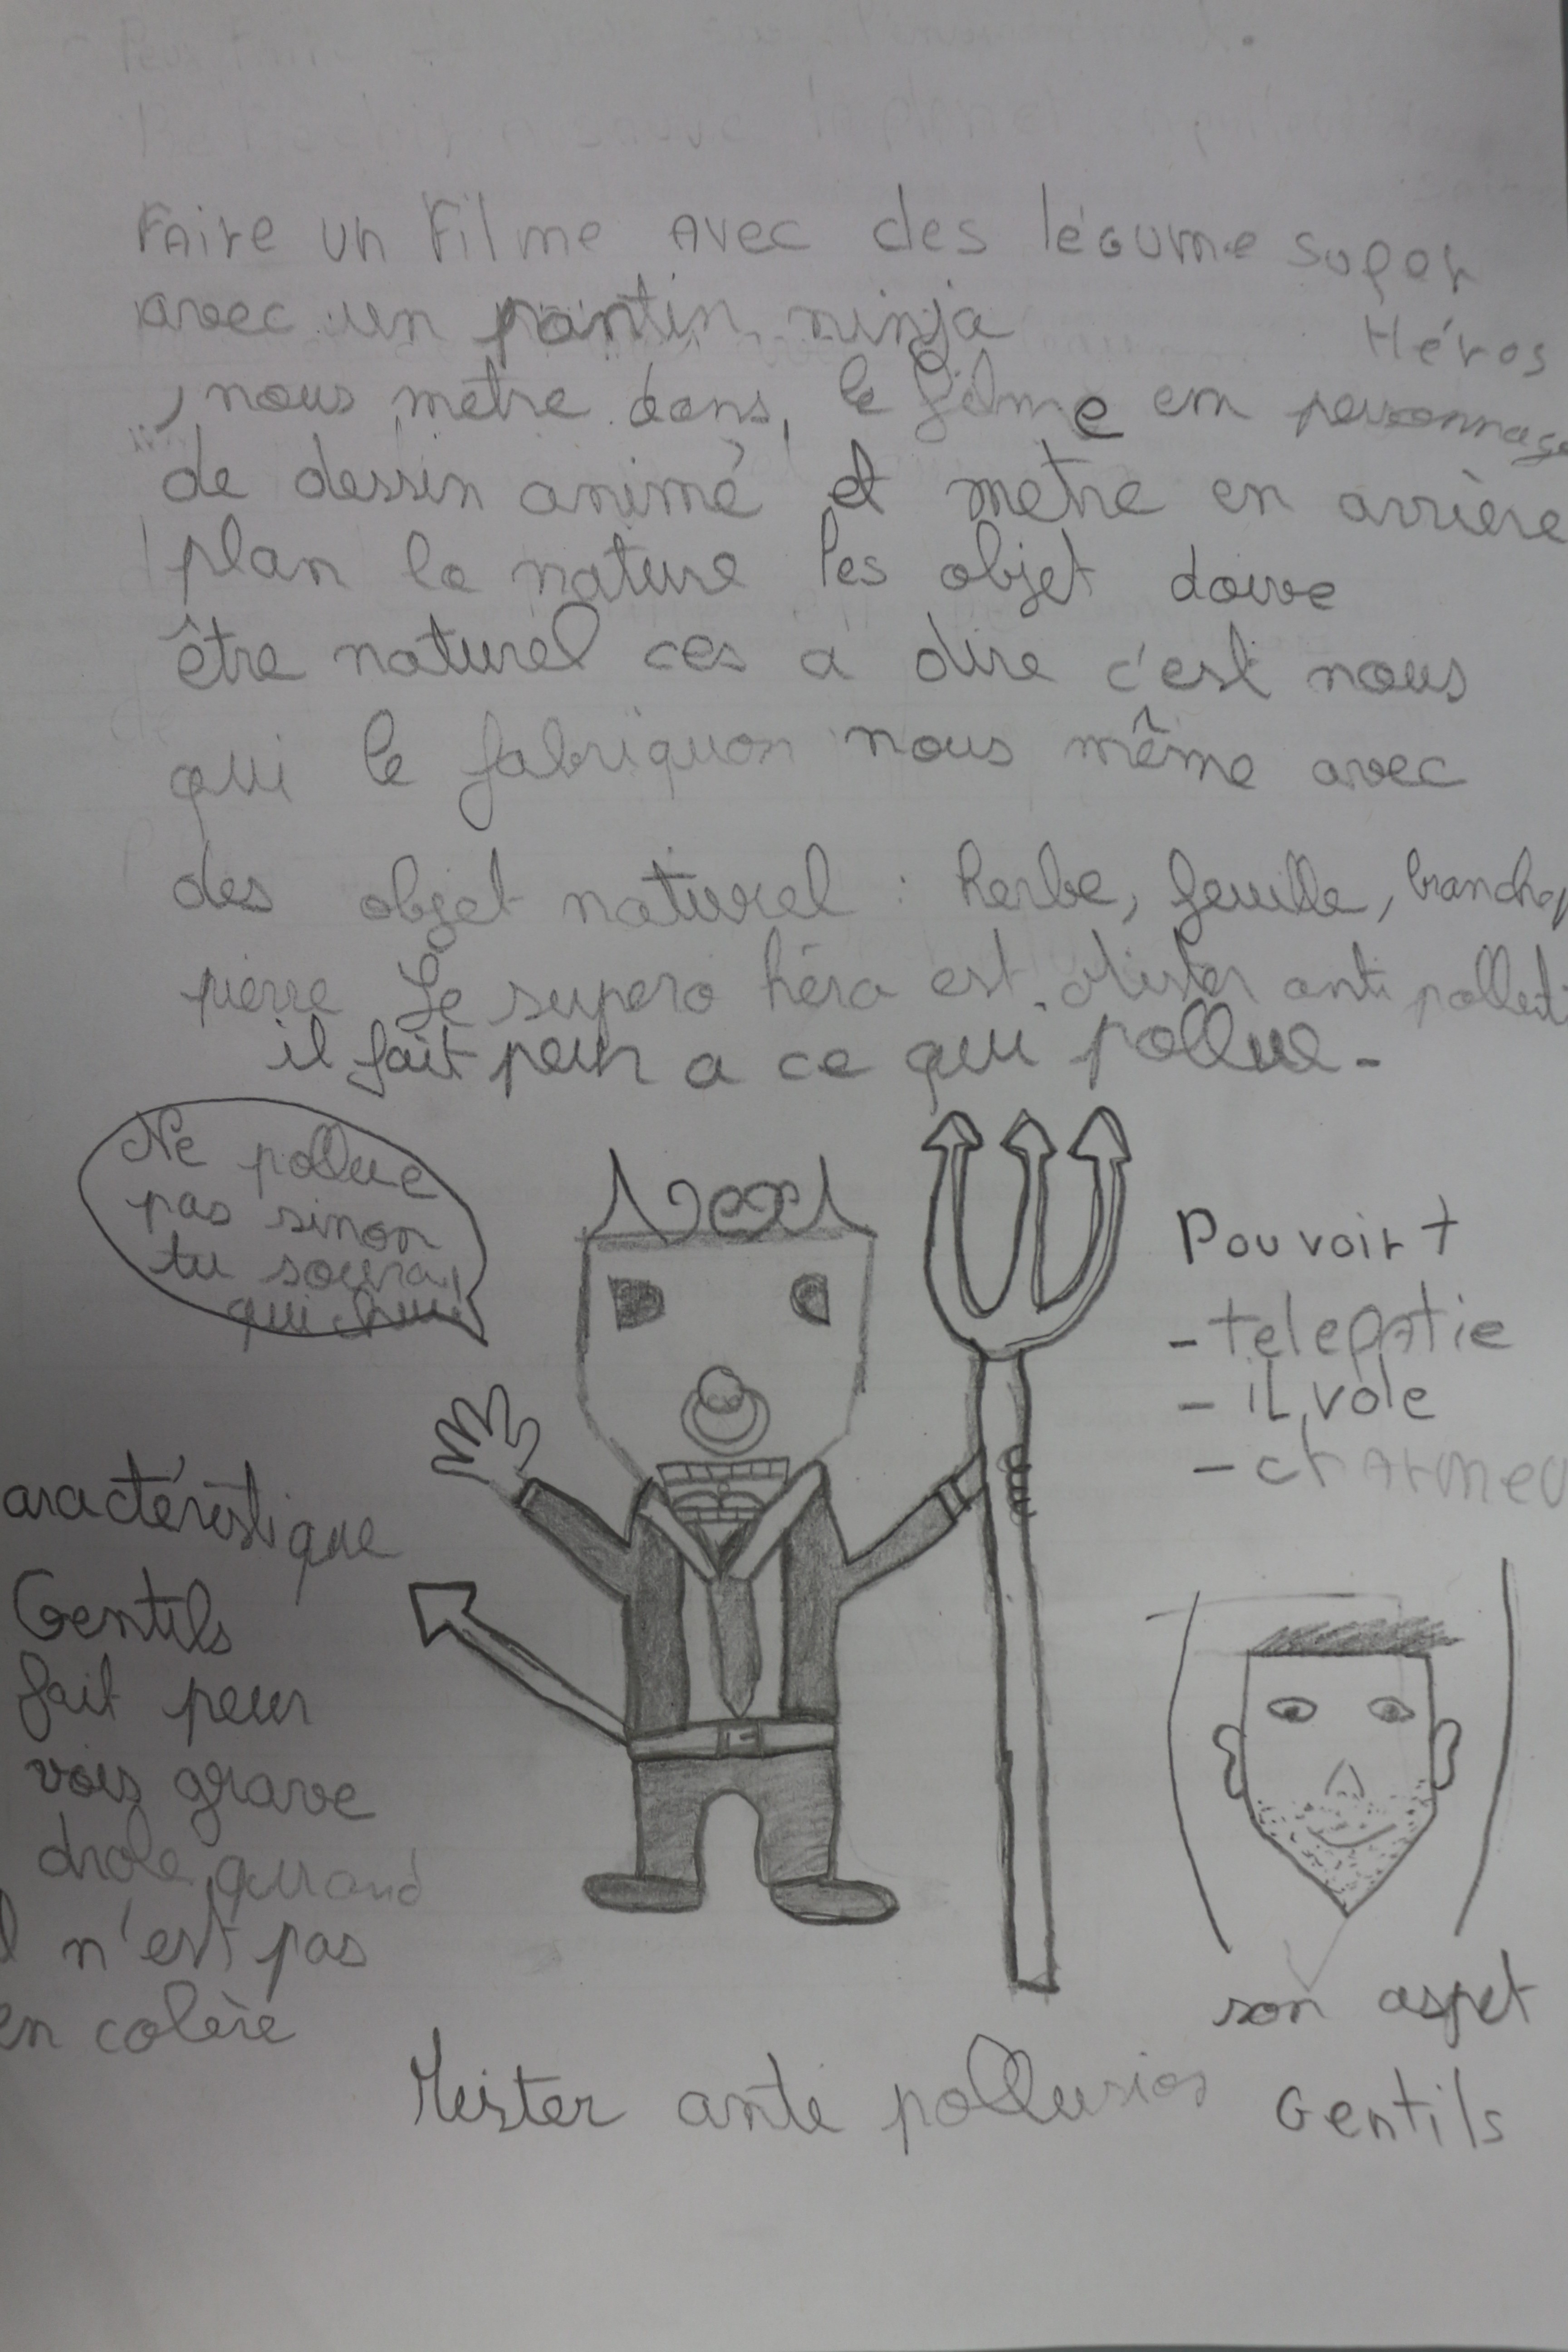 FAire un Filme Avec des légume super
Héros
avec un pantin ninja
, nous metre dans le filme em personnage
de dessin animé et metre en arrière
plan la nature les objet doive
être naturel ces a dire c'est nous
qui le fabriquon nous même avec
des objet naturel : herbe, feuille, branche
pierre Le supero héro est Mister anti
il fait peur a ce qui pollue.
Ne pollue
pas sinon
tu soura
qui chui!
Pouvoir +
- telepAtie
- iL vole
- chArmeu
aractéristique
Gentils
fait peur
vois grave
drole quand
l n'est pas
en colère
son aspet
Gentils
Mister ante pollusion